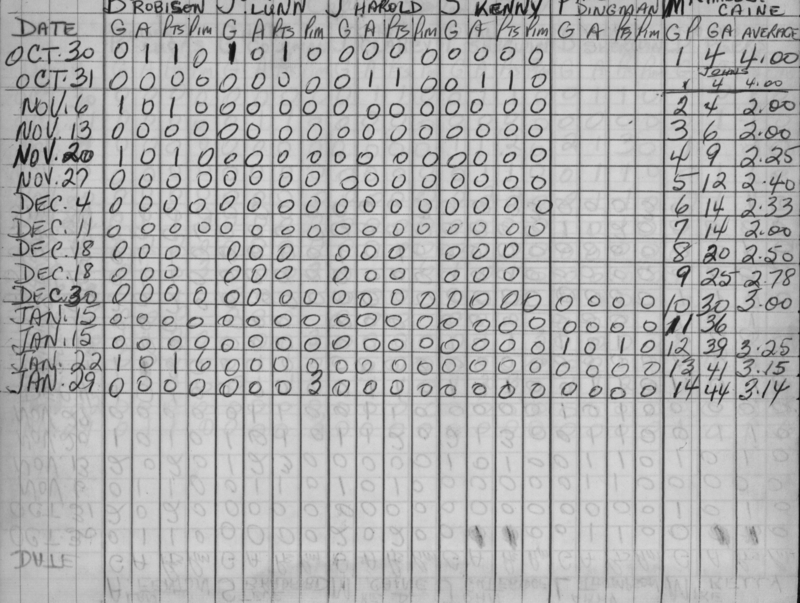 D ROBISON J. LUNN J HAROLD S KENNY DINGMAN M CAINE
DATE G A PTS PIM G A PTS PIM G A PTS PIM G A PTS PIM G A PTS PIM GP GA AVERAGE
OCT. 30 0 1 1 0 1 0 1 0 0 0 0 0 0 0 0 0 1 4 4.00
JOHNS
OCT. 31 0 0 0 0 0 0 0 0 0 1 1 0 0 1 1 0 1 4 4.00
NOV. 6 1 0 1 0 0 0 0 0 0 0 0 0 0 0 0 0 2 4 2.00
NOV. 13 0 0 0 0 0 0 0 0 0 0 0 0 0 0 0 0 3 6 2.00
NOV. 20 1 0 1 0 0 0 0 0 0 0 0 0 0 0 0 0 4 9 2.25
NOV. 27 0 0 0 0 0 0 0 0 0 0 0 0 0 0 0 0 5 12 2.40
DEC. 4 0 0 0 0 0 0 0 0 0 0 0 0 0 0 0 0 6 14 2.33
DEC. 11 0 0 0 0 0 0 0 0 0 0 0 0 0 0 0 0 7 14 2.00
DEC. 18 0 0 0 0 0 0 0 0 0 0 0 0 8 20 2.50
DEC. 18 0 0 0 0 0 0 0 0 0 0 0 0 9 25 2.78
DEC. 30 0 0 0 0 0 0 0 0 0 0 0 0 0 0 0 0 0 0 0 0 10 30 3.00
JAN. 15 0 0 0 0 0 0 0 0 0 0 0 0 0 0 0 0 11 36
JAN. 15 0 0 0 0 0 0 0 0 0 0 0 0 0 0 0 0 1 0 1 0 12 39 3.25
JAN. 22 1 0 1 6 0 0 0 0 0 0 0 0 0 0 0 0 0 0 0 0 13 41 3.15
JAN. 29 0 0 0 0 0 0 0 3 0 0 0 0 0 0 0 0 0 0 0 0 14 44 3.14